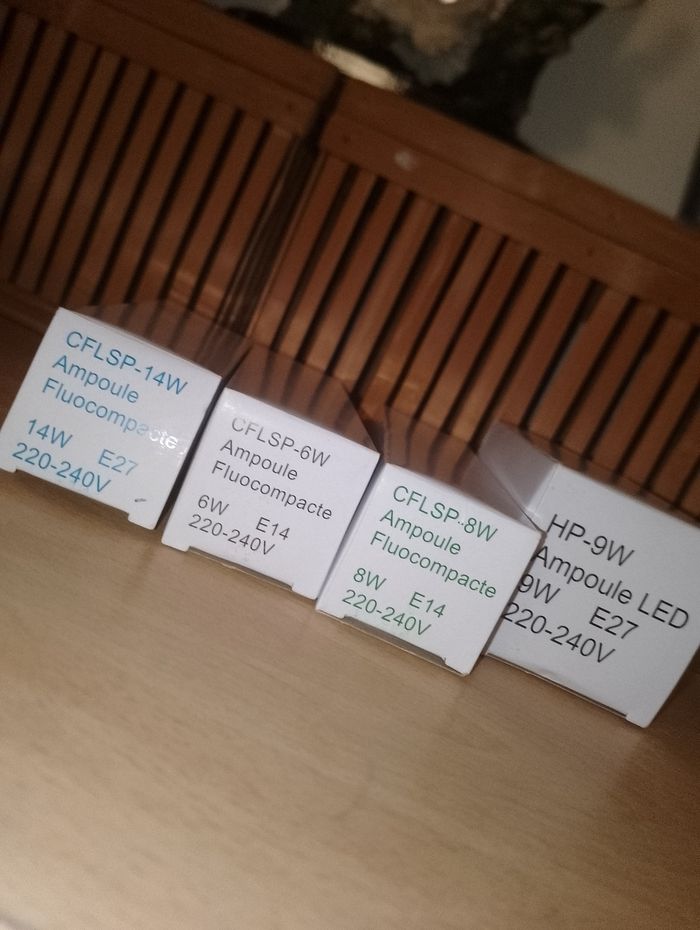 CFLSP-14W
Ampoule
Fluocompacte
14W E27
220-240V
CFLSP-6W
Ampoule
Fluocompacte
6W E14
220-240V
CFLSP-8W
Ampoule
Fluocompacte
8W E14
220-240V
HP-9W
Ampoule LED
9W E27
220-240V